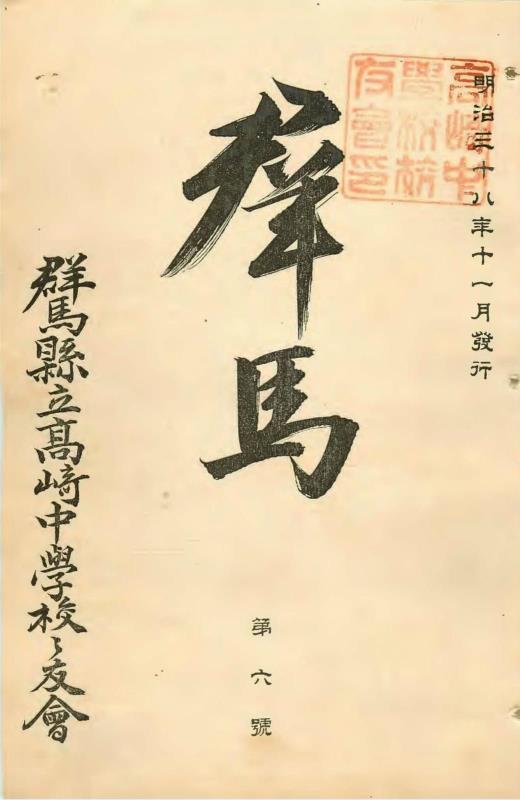 明治三十八年十一月發行
高崎中
學校校
友會印
羣馬
第六號
群馬縣立髙崎中學校々友會